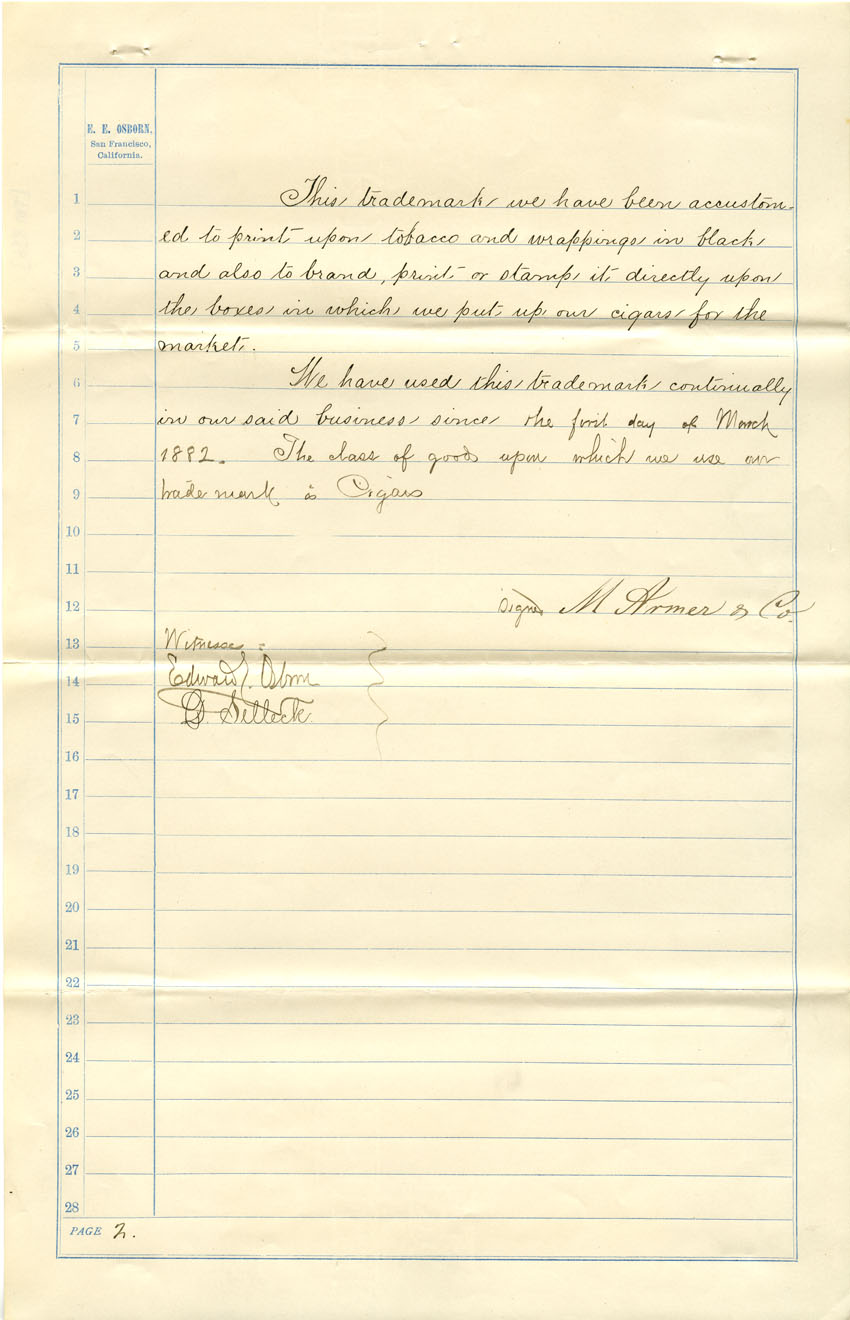 E. E. OSBORN,
San Francisco,
California.
1 This trademark we have been accustom-
2 ed to print upon tobacco and wrappings in black
3 and also to brand, print or stamp it directly upon
4 the boxes in which we put up our cigars for the
5 market.
6 We have used this trademark continually
7 in our said business since the first day of March
8 1882. The class of goods upon which we use our
9 trade mark is Cigars
10
11
12 signed M Armer & Co.
13 Witnesses:
14 Edward E. Osborn
15 D. Selleck
16
17
18
19
20
21
22
23
24
25
26
27
28
PAGE 2.